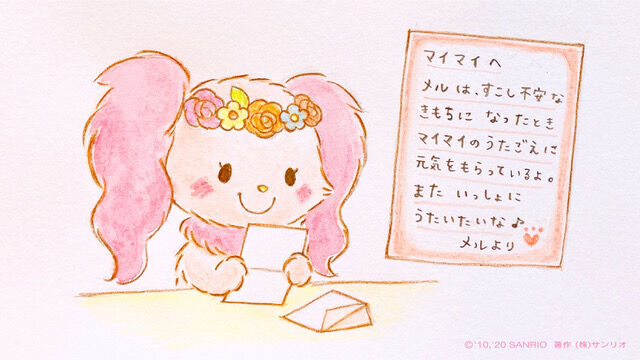 マイマイへ
メルは、すこし不安な
きもちに なったとき
マイマイのうたごえに
元気をもらっているよ。
また いっしょに
うたいたいな♪
メルより
©'10,'20 SANRIO 著作 (株)サンリオ